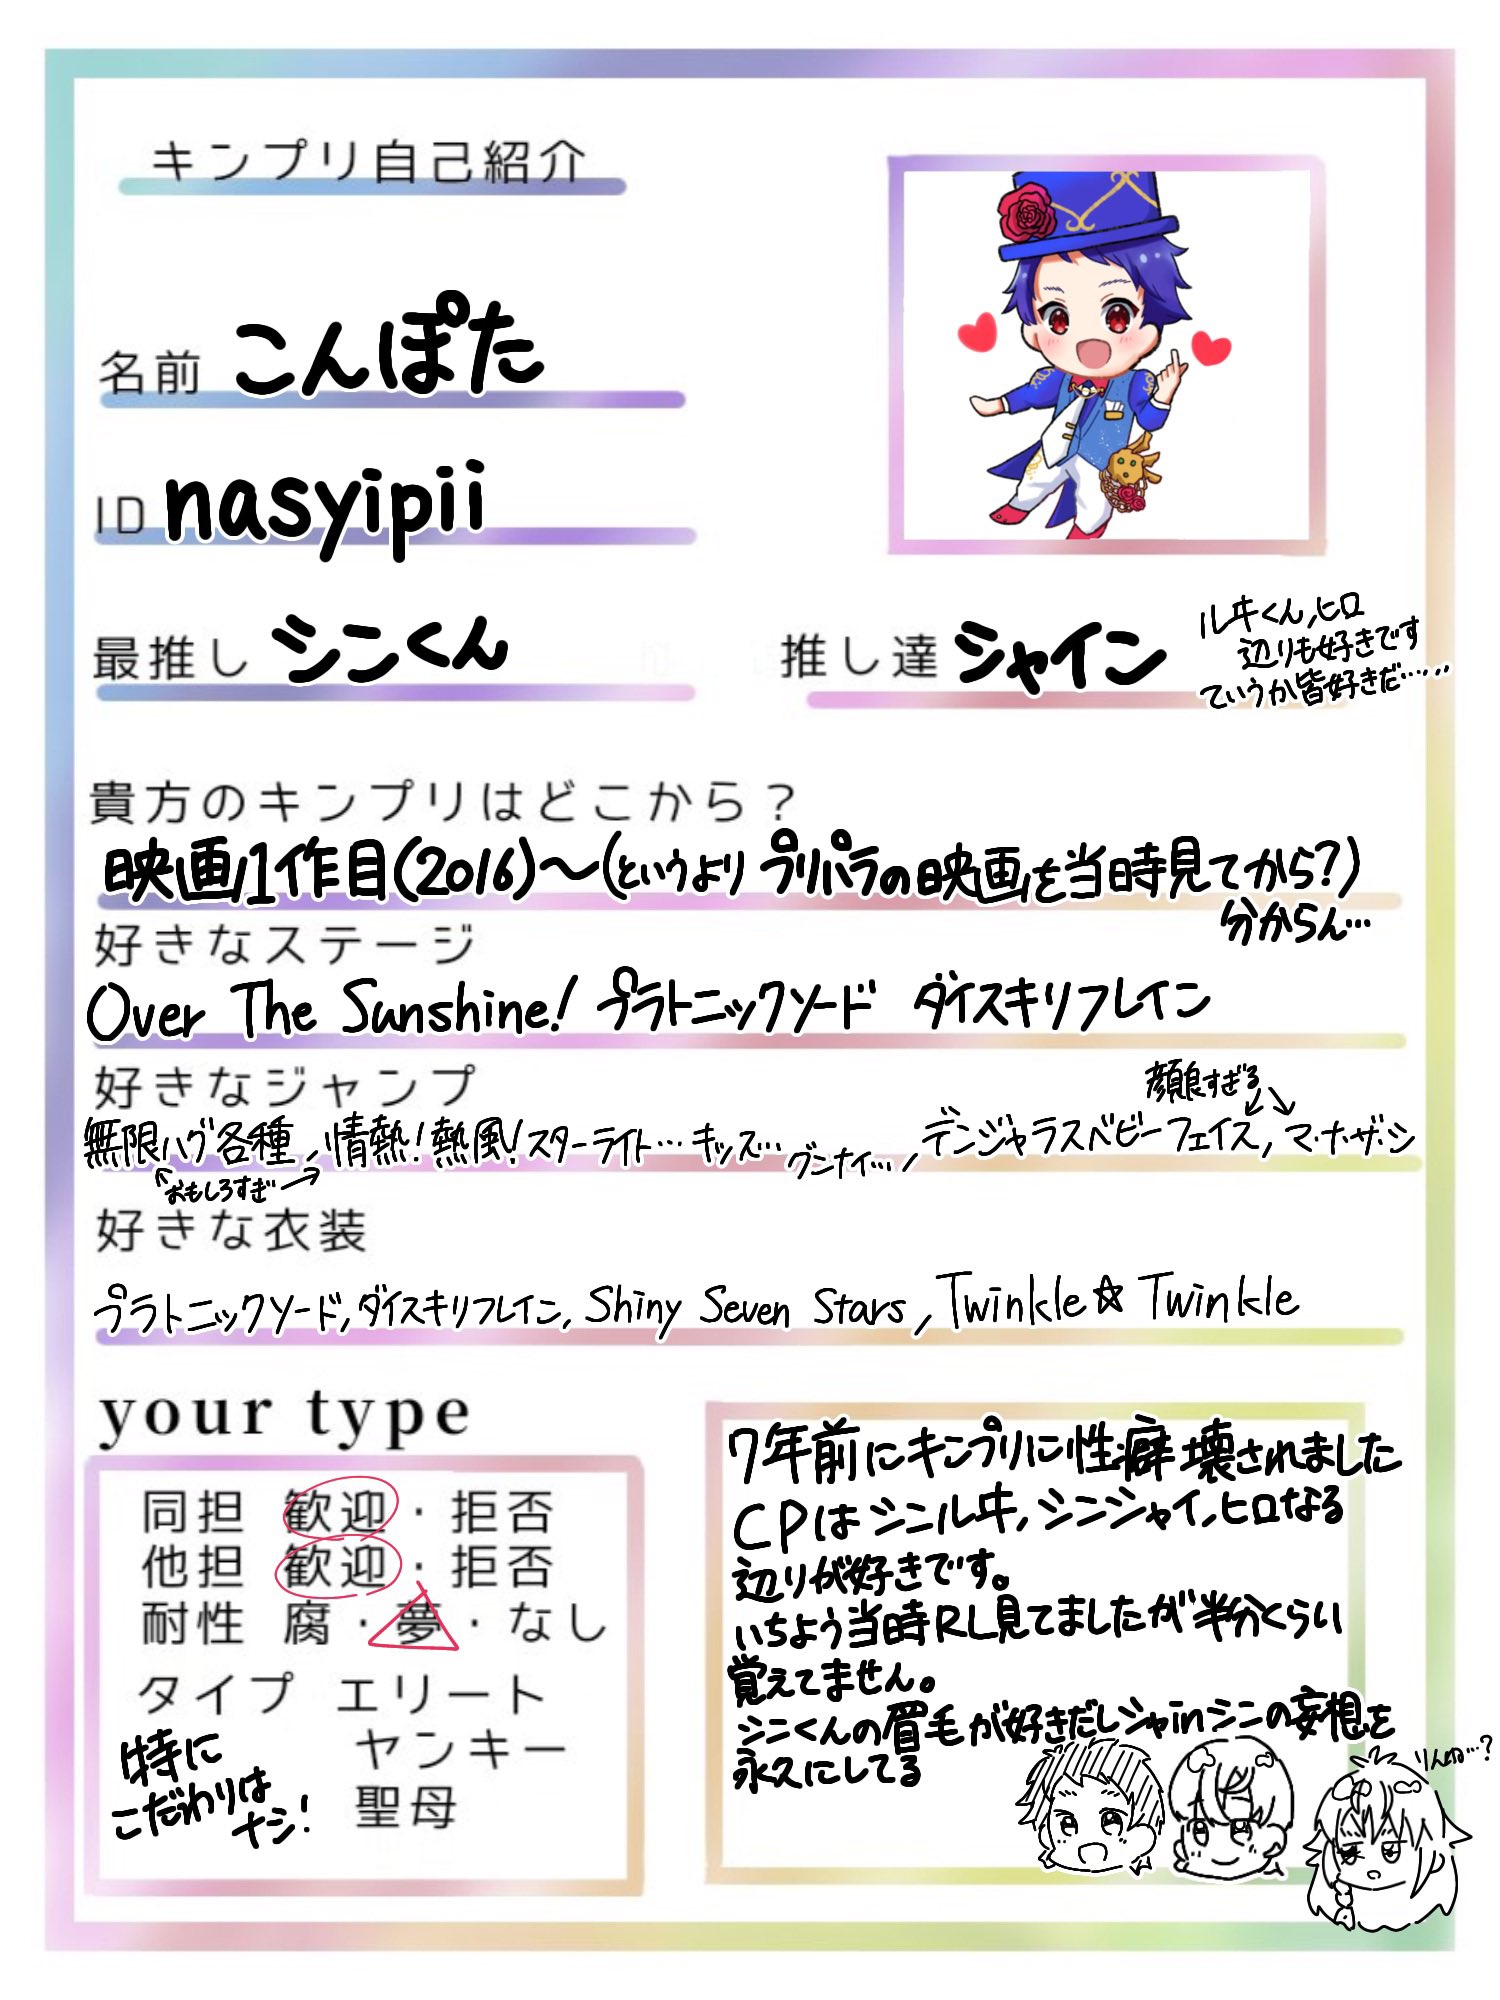 キンプリ自己紹介
名前 こんぽた
ID nasyipii
最推し シンくん
推し達 シャイン
ルヰくん,ヒロ
辺りも好きです
ていうか皆好きだ……
貴方のキンプリはどこから？
映画1作目(2016)〜(というより プリパラの映画を当時見てから?)
分からん…
好きなステージ
Over The Sunshine! プラトニックソード ダイスキリフレイン
好きなジャンプ
顔良すぎる
無限ハグ各種,情熱!熱風!スターライト…キッズ…グンナイ…,デンジャラスベビーフェイス,マ・ナ・ザ・シ
おもしろすぎ
好きな衣装
プラトニックソード,ダイスキリフレイン,Shiny Seven Stars,Twinkle☆Twinkle
your type
同担 歓迎・拒否
他担 歓迎・拒否
耐性 腐・夢・なし
タイプ エリート
ヤンキー
聖母
特に
こだわりは
ナシ!
7年前にキンプリに性癖壊されました
CPはシンルヰ,シンシャイ,ヒロなる
辺りが好きです。
いちよう当時RL見てましたが半分くらい
覚えてません。
シンくんの眉毛が好きだしシャinシンの妄想を
永久にしてる
りんね…?